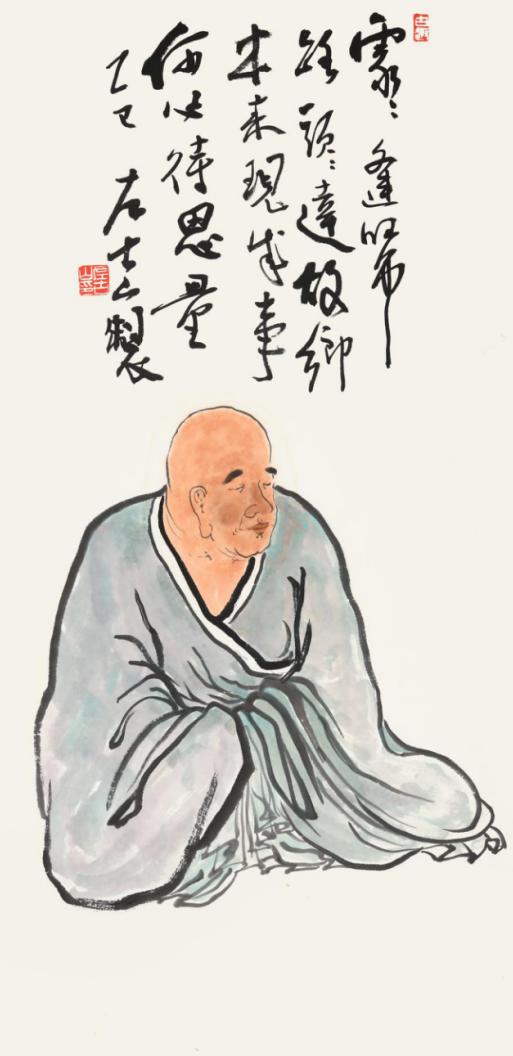 處〻逢歸
路頭〻達故鄉
本來現成事
何必待思量
乙巳 製